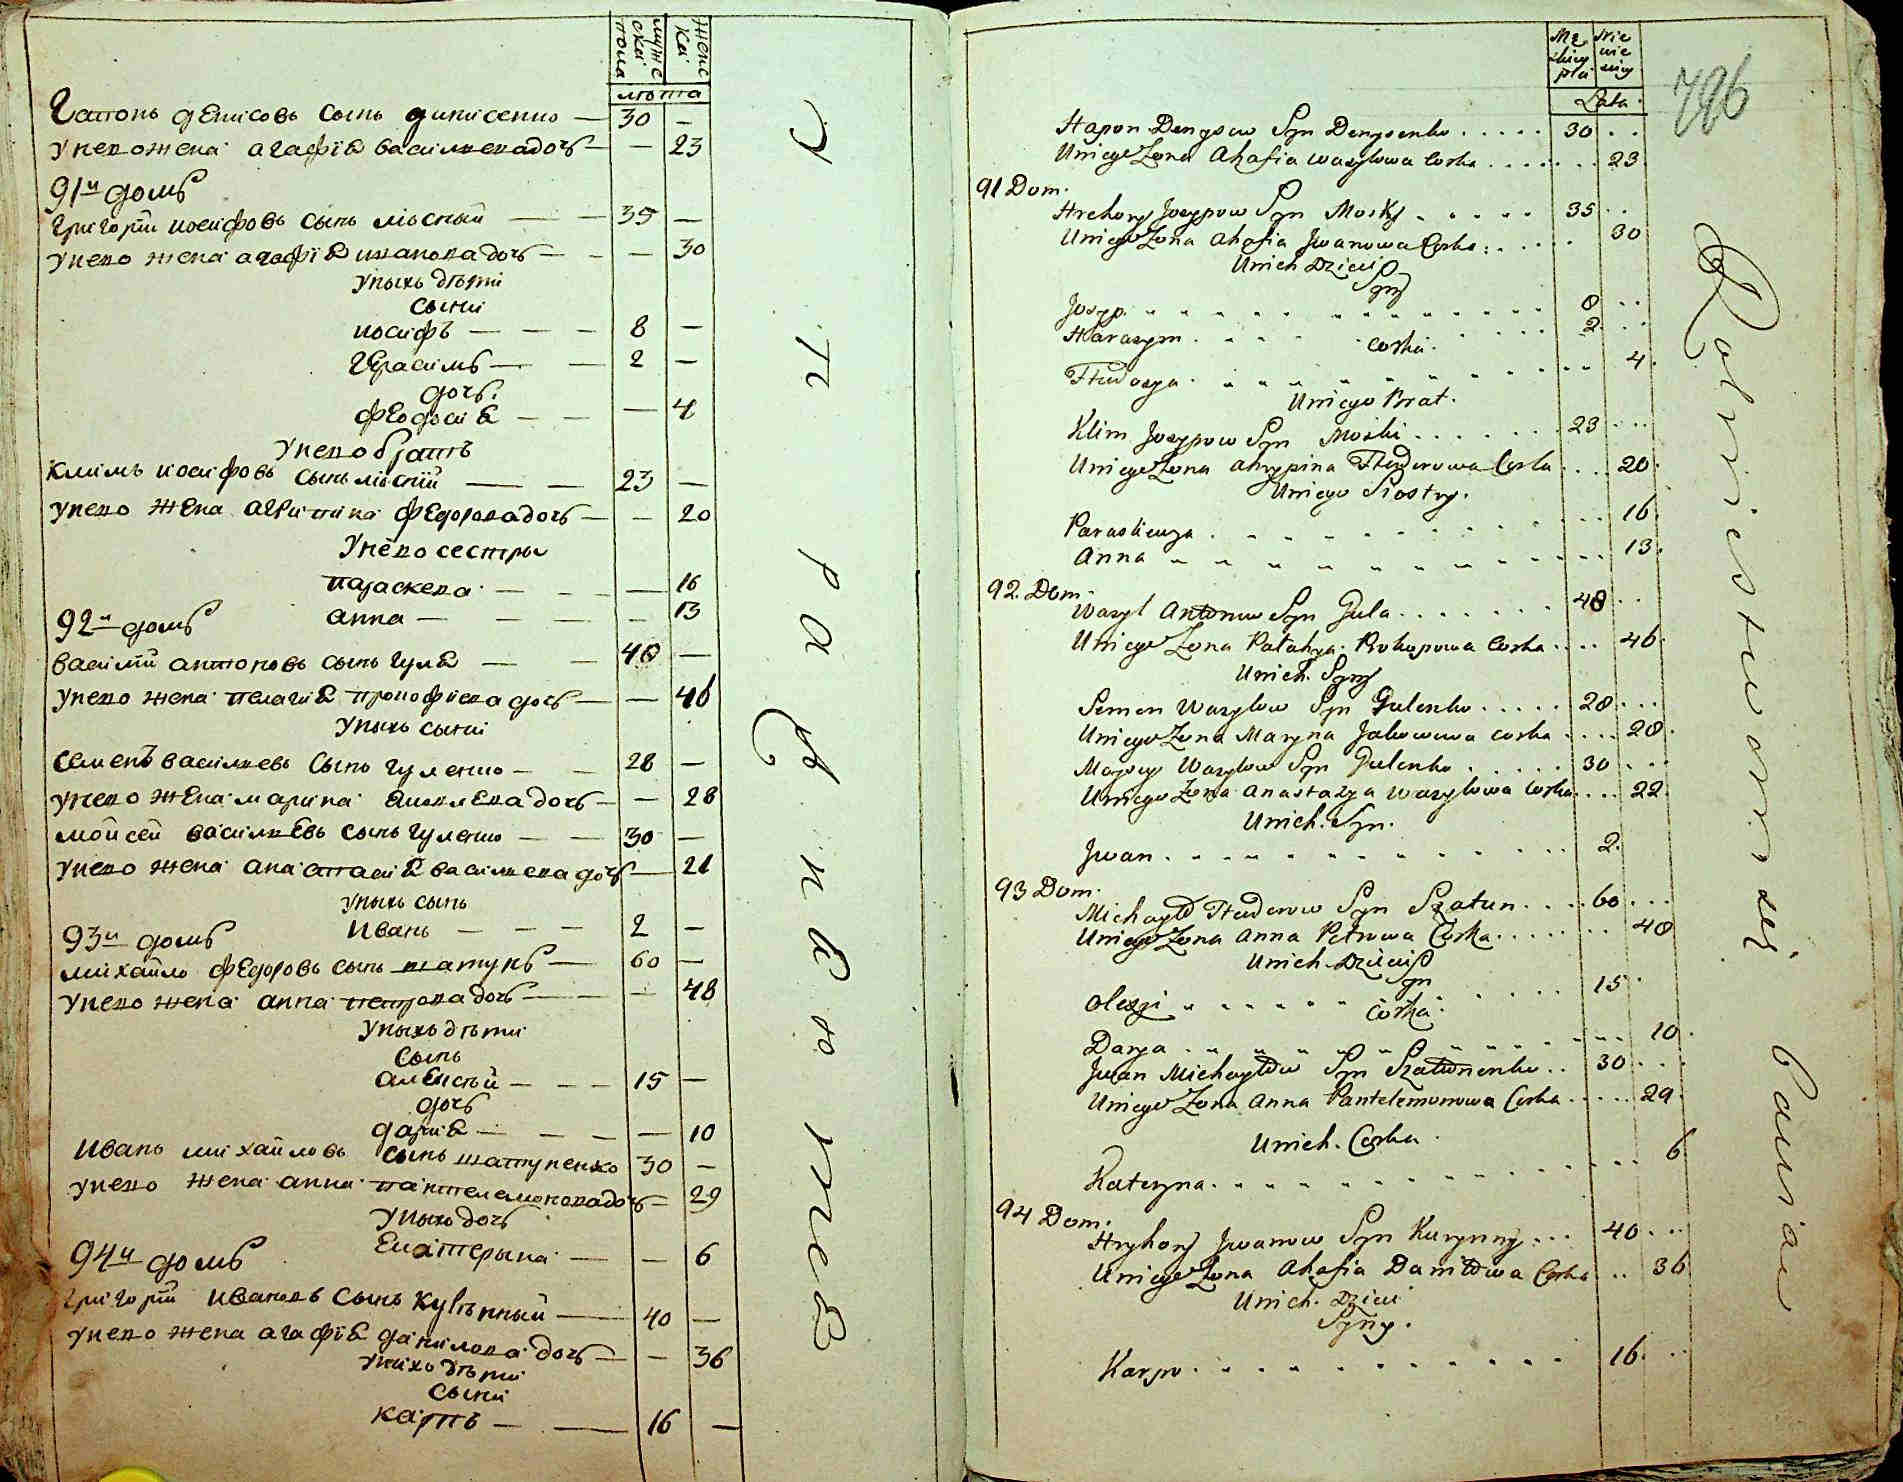 мужеска пола
женска
лѣта
Гапонъ Денисовъ сынъ Динисенко — 30 —
у него жена агафія василиева дочь — — 23
91й домъ
Григорій иосифовъ сынъ 35 —
у него жена агафія иванова дочь — — 30
у нихъ дѣти
сыни
иосифъ — — — 8 —
Герасимъ — — 2 —
дочь.
феодосія — — — 4
у него братъ
Климъ иосифовъ сынъ — — 23 —
у него жена агрипина федорова дочь — — 20
у него сестры
параскева — — — — 16
анна — — — — 13
92й домъ
василій антоновъ сынъ гуля — — 48 —
у него жена пелагия дочь — — 46
у нихъ сыни
семенъ василиевъ сынъ гуленко — — 28 —
у него жена марина яковлева дочь — — 28
моисей василиевъ сынъ гуленко — — 30 —
у него жена анастасія василиева дочь —
у нихъ сынъ
иванъ — — — 2 —
93й домъ
михайло федоровъ сынъ шатунъ — 60 —
у него жена анна петрова дочь — — — 48
у нихъ дѣти
сынъ
алексѣй — — — 15 —
дочь
дария — — — — — 10
иванъ михайловъ сынъ шатуненко 30 —
у него жена анна пантелемонова дочь — 29
у нихъ дочь
екатерына — — — 6
94й домъ
григорій ивановъ сынъ — 40 —
у него жена агафія данилова дочь — — 36
у нихъ дѣти
сыни
карпъ — — 16 —
Męskiey płci
Lata.
796
Hapon Denysow Syn Denysenko ..... 30 ..
U niego Zona Ahafia Wasylowa Corka ....... 23.
91 Dom.
Hrehory Josypow Syn ..... 35 ..
U niego Zona Ahafia Jwanowa Corka ...... 30
U nich Dzieci
Syny
Josyp ........ 8 ..
Harasym ....... 2 ..
Corka.
Fteodosya ........ 4.
U niego Brat.
Klim Josypow Syn ....... 23 ...
U niego Zona Ahrypina Fteodorowa Corka .... 20.
U niego Siostry.
Paraskiewya ........ 16.
Anna ........ 13.
92. Dom.
Wasyl Antonow Syn Gula ....... 48 ..
U niego Zona Palahya Prokopowa Corka .... 46.
U nich. Syny
Semen Wasylow Syn Gulenko ..... 28 ...
U niego Zona Maryna Jakowowa Corka .... 28.
Wasylow Syn Gulenko ..... 30 ...
U niego Zona Anastazya Wasylowa Corka .... 22.
U nich. Syn.
Jwan ........ 2.
93 Dom.
Michayło Fteodorow Syn Szatun .... 60 ...
U niego Zona Anna Petrowa Corka ....... 48
U nich Dzieci
Syn
Olexji ........ 15.
Corka.
Darya ........ 10.
Jwan Michayłow Syn Szatunenko .. 30 ...
U niego Zona Anna Pantelemonowa Corka ..... 29.
U nich. Corka
Kateryna ........ 6
94 Dom.
Hryhory Jwanow Syn Kurynny ... 40 ...
U niego Zona Ahafia Daniłowa Corka .. 36
U nich. Dzieci
Syny.
Karpo ........ 16 ..